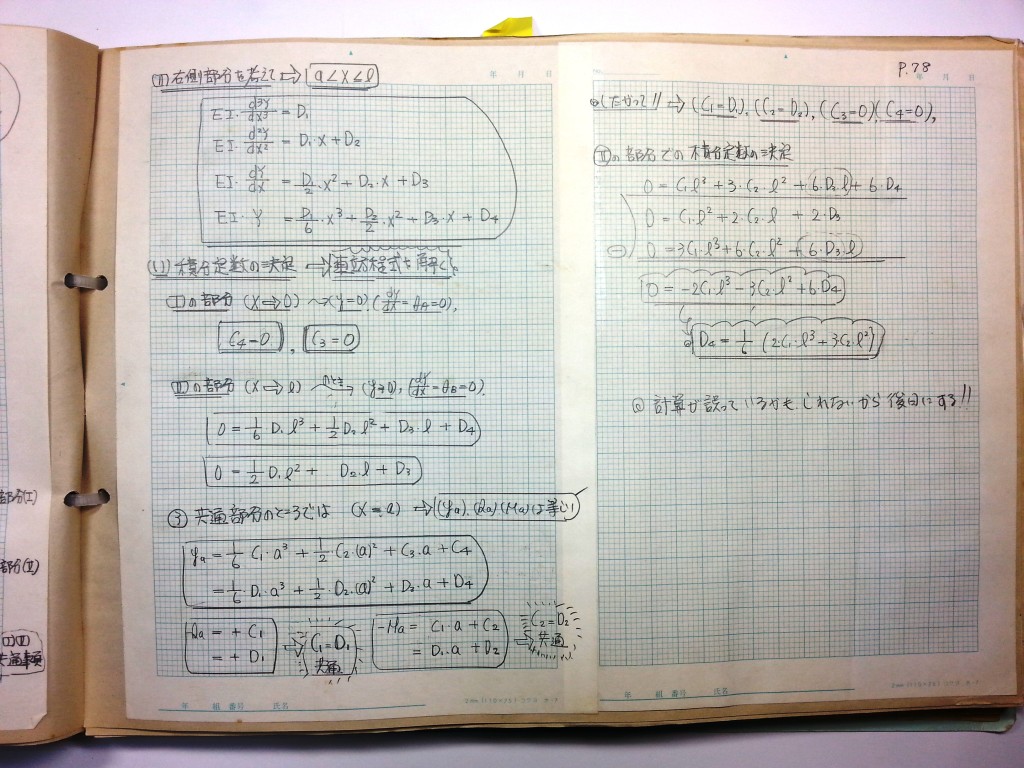 (II) 右側部分を考えて ⇒ a<x≤l
EI・d³y/dx³ = D₁
EI・d²y/dx² = D₁・x + D₂
EI・dy/dx = D₁/2・x² + D₂・x + D₃
EI・y = D₁/6・x³ + D₂/2・x² + D₃・x + D₄
積分定数の決定 ⇒ 連立方程式を解く。
(I)の部分 (x⇒0) → (y=0), (dy/dx = θA = 0),
C₄=0 , C₃=0
(II)の部分 (x⇒l) のとき→ (y⇒0), (dy/dx = θB = 0).
0 = 1/6 D₁ l³ + 1/2 D₂ l² + D₃・l + D₄
0 = 1/2 D₁ l² + D₂・l + D₃
③ 共通部分のところでは (x=a) → (ya), (Qa) (Ma)は等しい
ya = 1/6 C₁・a³ + 1/2 C₂・(a)² + C₃・a + C₄
= 1/6 D₁・a³ + 1/2・D₂・(a)² + D₃・a + D₄
-Qa = + C₁
= + D₁
⇒ C₁=D₁
共通
-Ma = C₁・a + C₂
= D₁・a + D₂
⇒ C₂=D₂
共通
年 組 番号 氏名
部分(I)
部分(II)
(I)(II)
共通事項
年 月 日
P.78
年 月 日
したがって!! ⇒ (C₁=D₁), (C₂=D₂), (C₃=0) (C₄=0),
(II)の部分での積分定数の決定
0 = C₁l³ + 3・C₂・l² + 6・D₃・l + 6・D₄
0 = C₁・l² + 2・C₂・l + 2・D₃
(-) 0 = 3C₁・l³ + 6・C₂・l² + (6・D₃)l
0 = -2C₁l³ - 3C₂・l² + 6・D₄
D₄ = 1/6 (2・C₁・l³ + 3C₂・l²)
◎ 計算が誤っているかもしれないから後日にする!!
年 組 番号 氏名